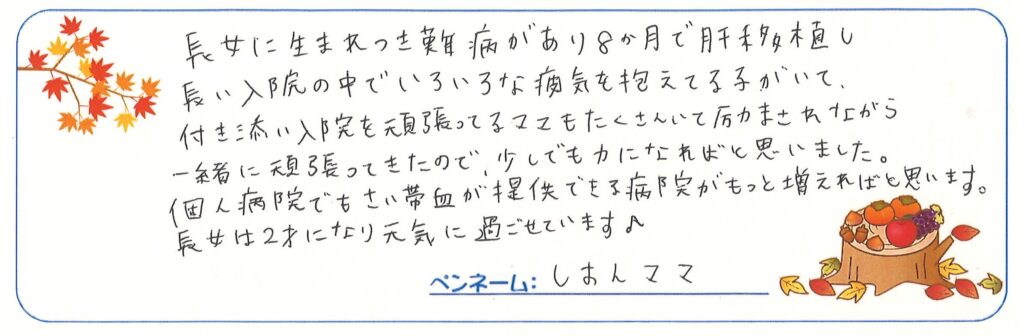 長女に生まれつき難病があり8か月で肝移植し
長い入院の中でいろいろな病気を抱えてる子がいて、
付き添い入院を頑張ってるママもたくさんいて励まされながら
一緒に頑張ってきたので、少しでも力になればと思いました。
個人病院でもさい帯血が提供できる病院がもっと増えればと思います。
長女は2才になり元気に過ごせています♪
ペンネーム: しおんママ